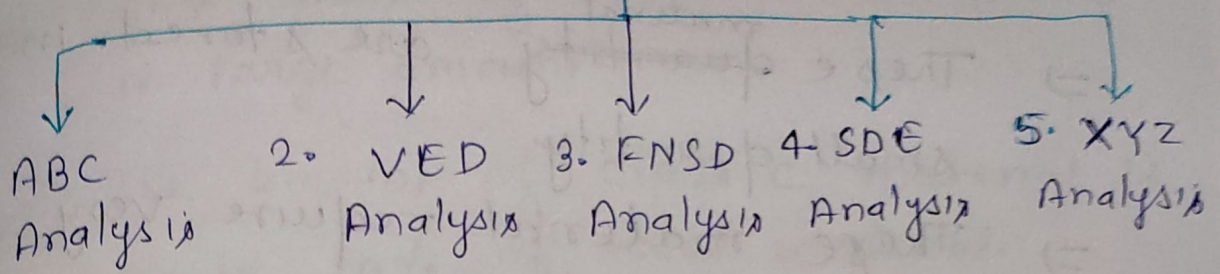 ABC
Analysis
2. VED
Analysis
3. FNSD
Analysis
4. SDE
Analysis
5. XYZ
Analysis